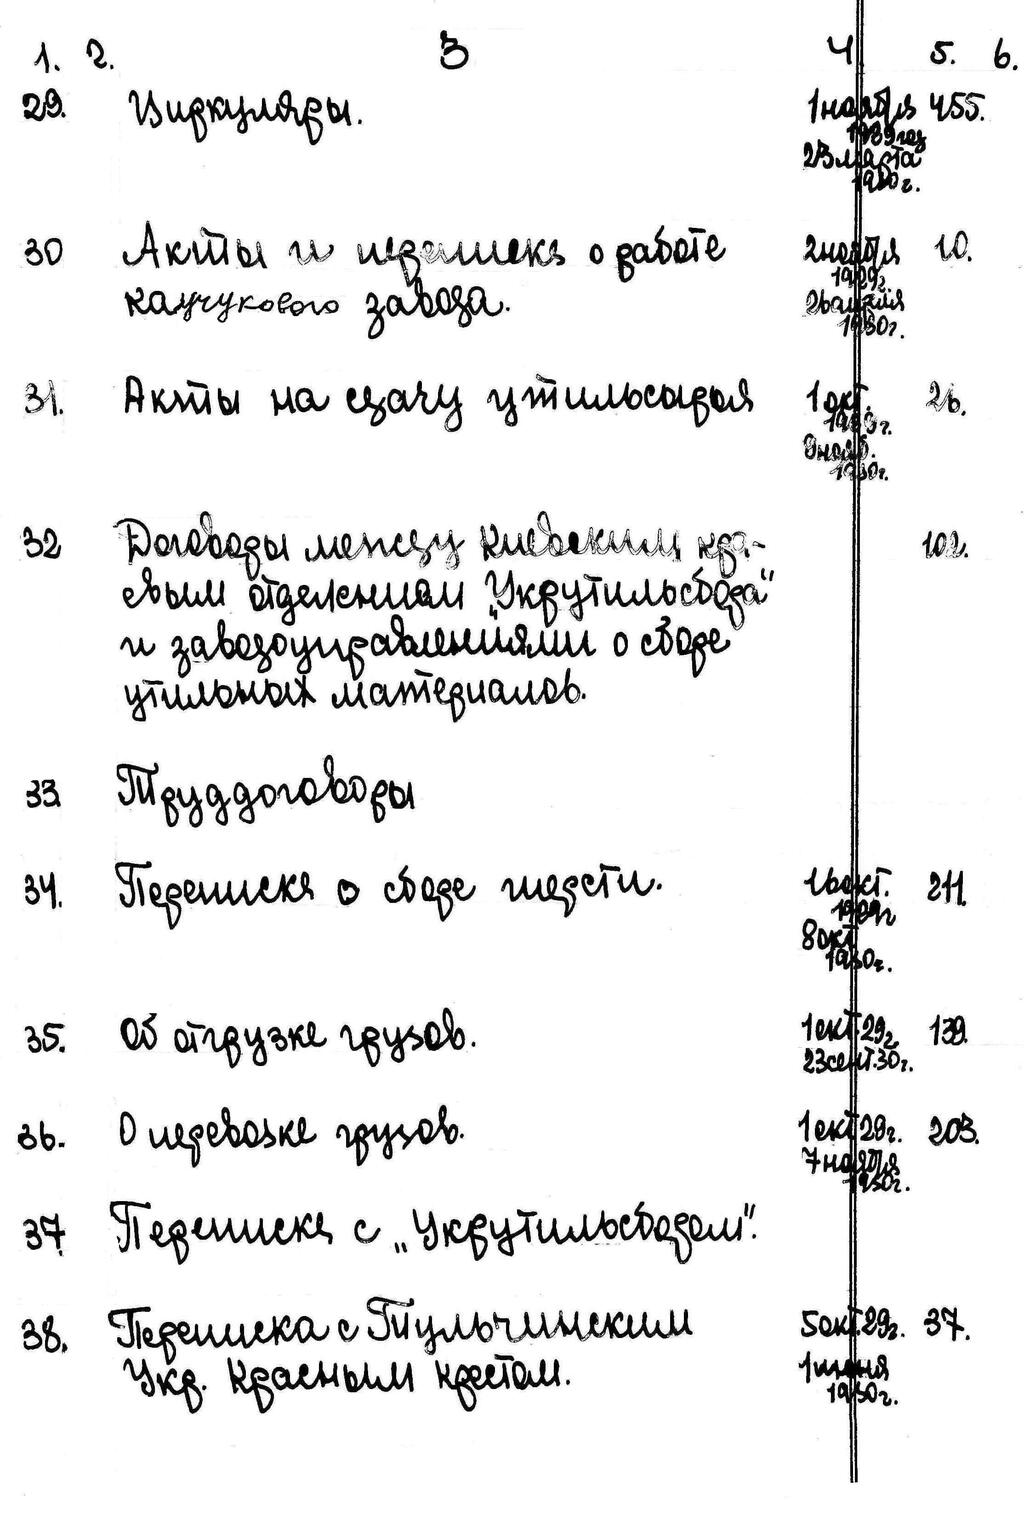 1. 2. 3 4 5. 6.
29. Циркуляры. 1 ноября 455.
1939 год
23 марта
1930 г.
30 Акты и переписка о работе 2 ноября 10.
каучукового завода. 1929г.
26 апреля
1930г.
31. Акты на сдачу утильсырья 1 окт. 26.
9 нояб.
1930г.
32 Договоры между Киевским кра- 102.
евым отделением „Укрутильсбора"
и заводоуправлениями о сборе
утильных материалов.
33 Труддоговоры
34. Переписка о сборе шерсти. 16 окт. 211.
1929г
8 окт
1930г.
35. Об отгрузке грузов. 1 окт. 29г. 139.
23 сент. 30г.
36. О перевозке грузов. 1 окт 29г. 203.
7 ноября
1930г.
37 Переписка с „Укрутильсбором".
38. Переписка с Тульчинским 5 окт. 29г. 37.
Укр. Красным крестом. 1 июня
1930г.